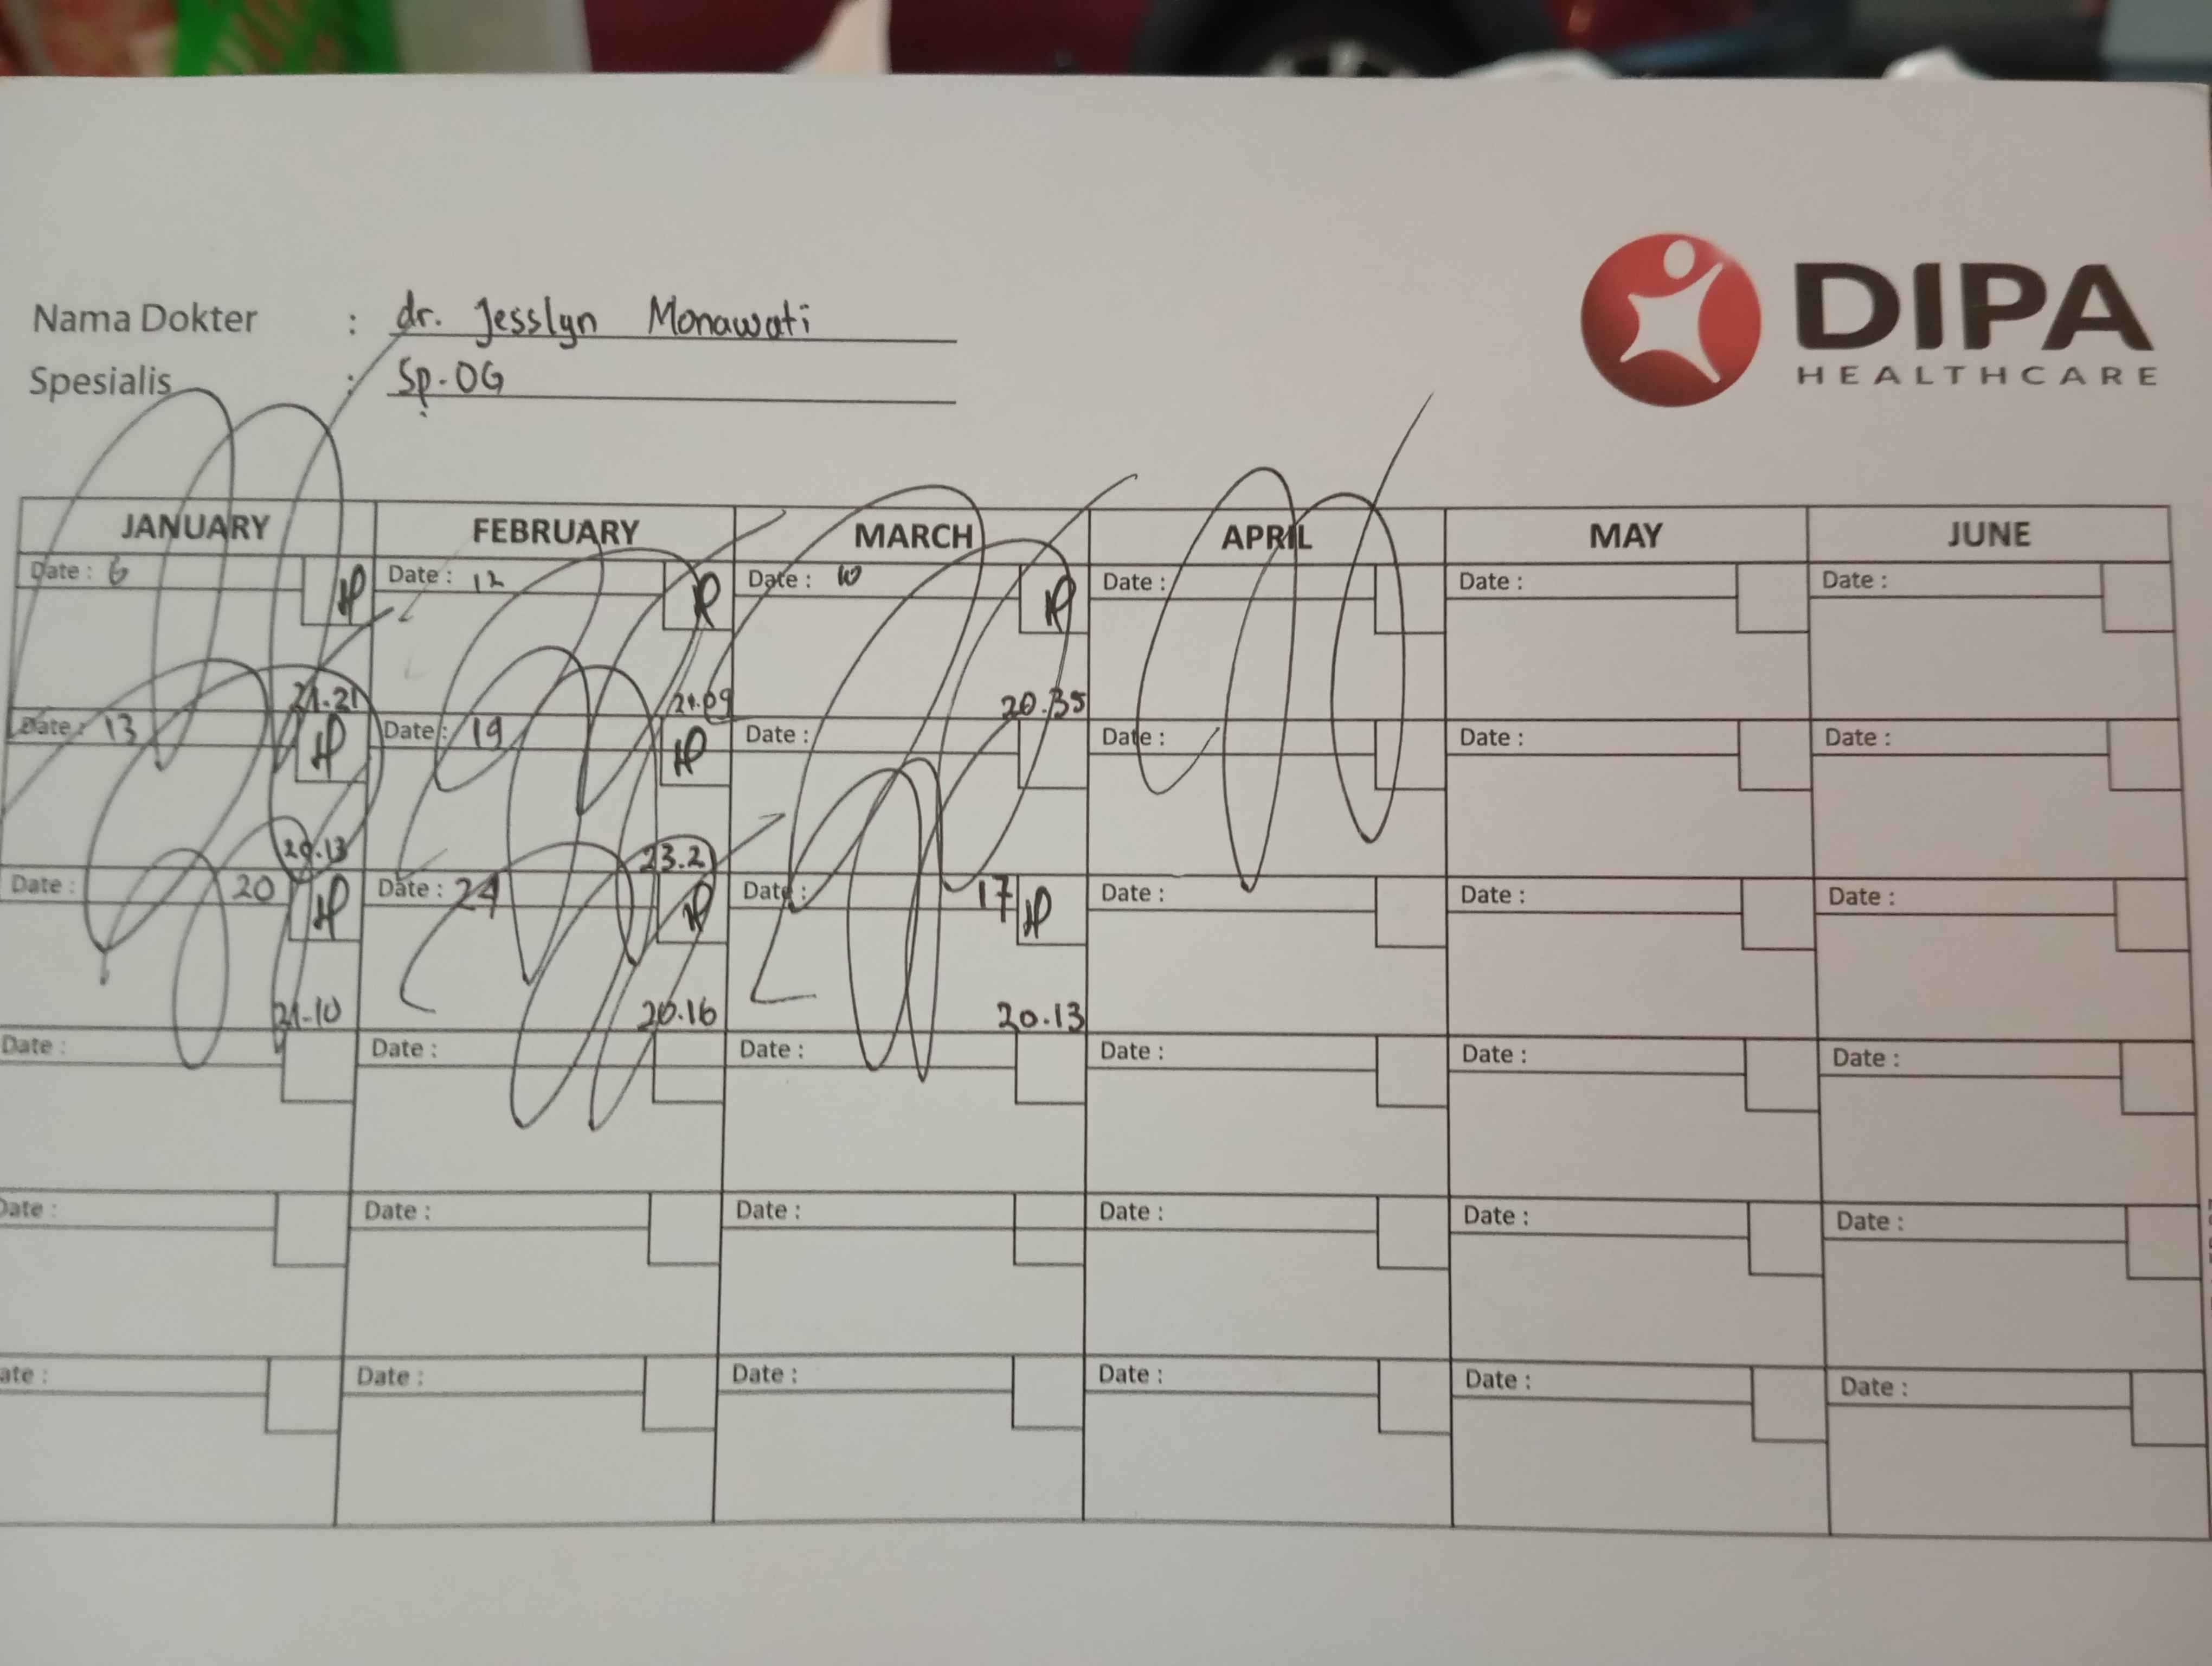 DIPA
HEALTHCARE
Nama Dokter : dr. Jesslyn Monawati
Spesialis : Sp.OG
JANUARY FEBRUARY MARCH APRIL MAY JUNE
Date : 6 Date : 12 Date : 10 Date : Date : Date :
21.21 21.09 20.35
Date : 13 Date : 19 Date : Date : Date : Date :
20.13 23.21
Date : 20 Date : 24 Date : 17 Date : Date : Date :
21.10 20.16 20.13
Date : Date : Date : Date : Date : Date :
Date : Date : Date : Date : Date : Date :
ate : Date : Date : Date : Date : Date :